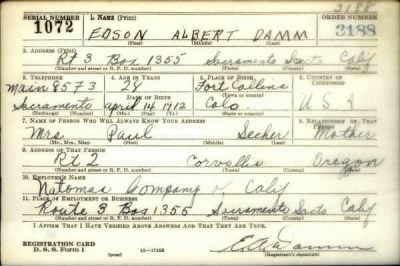 3188
SERIAL NUMBER 1. NAME (Print) ORDER NUMBER
1072 EDSON ALBERT DAMM 3188
(First) (Middle) (Last)
2. ADDRESS (Print)
Rt 3 Box 1355 Sacramento Sacto Calif
(Number and street or R. F. D. number) (Town) (County) (State)
3. TELEPHONE 4. AGE IN YEARS 5. PLACE OF BIRTH 6. COUNTRY OF CITIZENSHIP
Main 8573 28 Fort Collins
DATE OF BIRTH (Town or county)
Sacramento April 14 1912 Colo U S A
(Mo.) (Day) (Yr.) (State or country)
7. NAME OF PERSON WHO WILL ALWAYS KNOW YOUR ADDRESS 8. RELATIONSHIP OF THAT PERSON
Mrs Paul Mother
(Mr., Mrs., Miss) (First) (Middle) (Last)
9. ADDRESS OF THAT PERSON
Rt 2 Corvallis Oregon
(Number and street or R. F. D. number) (Town) (County) (State)
10. EMPLOYER'S NAME
Natomas Company of Calif
11. PLACE OF EMPLOYMENT OR BUSINESS
Route 3 Box 1355 Sacramento Sacto Calif
(Number and street or R. F. D. number) (Town) (County) (State)
I AFFIRM THAT I HAVE VERIFIED ABOVE ANSWERS AND THAT THEY ARE TRUE.
REGISTRATION CARD
D. S. S. Form 1 (Registrant's signature)